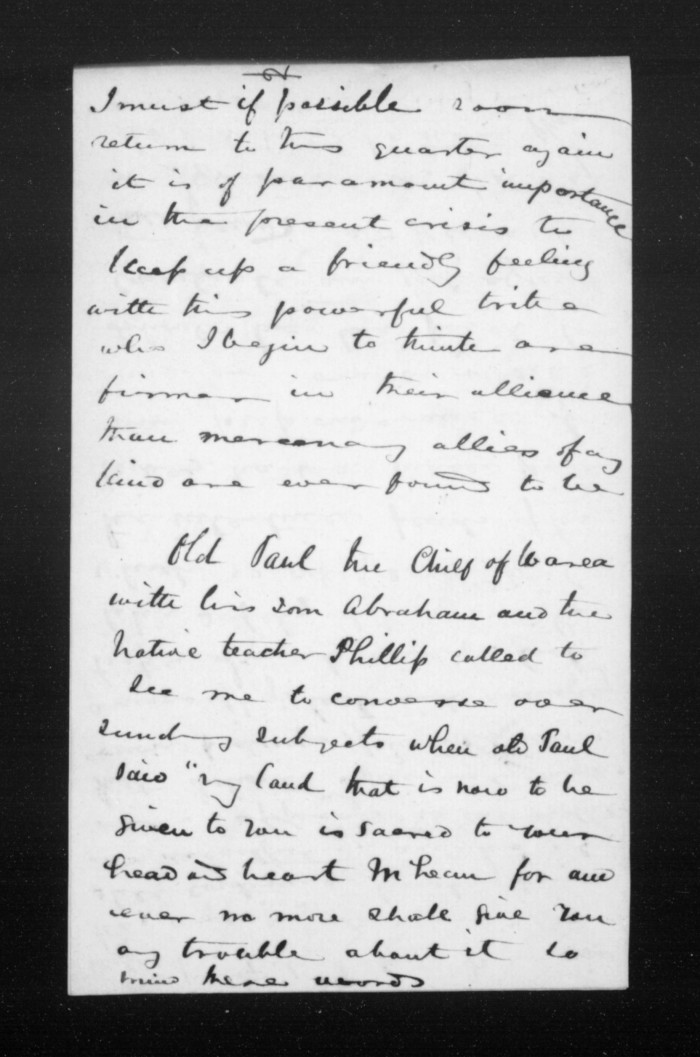 I must if possible soon
return to this quarter again
it is of paramount importance
in the present crisis to
keep up a friendly feeling
with this powerful tribe
who I begin to think are
firmer in their alliance
than mercenary allies of any
kind are ever found to be
Old Paul the Chief of Warea
with his son Abraham and the
native teacher Phillip called to
see me to converse over
sundry subjects when old Paul
said "my land that is now to be
given to you is sacred to your
head and heart McLean for and
ever no more shall give you
any trouble about it so
mind these words